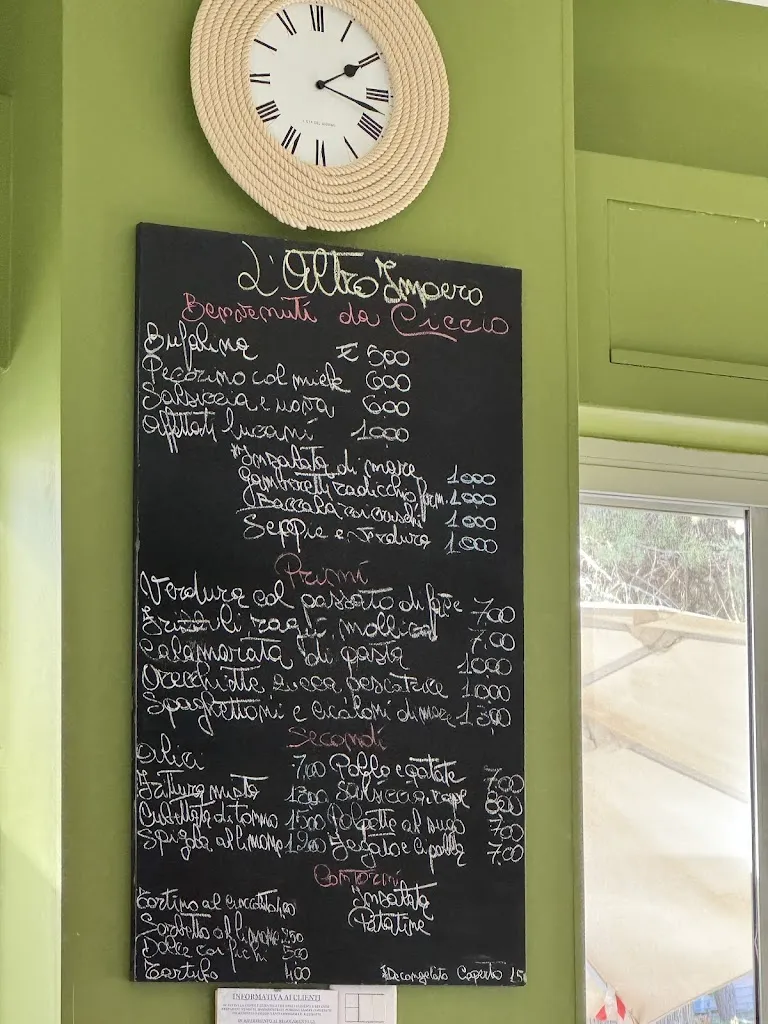 L'Altro Impero
Benvenuti da Ciccio
Bufalina € 5,00
Pecorino col miele 6,00
Salsiccia e uova 6,00
Affettati lucani 10,00
*Insalata di mare 10,00
Gamberetti radicchio form. 10,00
Baccalà coi cruschi 10,00
Seppie e verdure 10,00
Primi
Verdura col passato di fave 7,00
Frizzuli ragù, mollica 7,00
Calamarata di pasta 10,00
Orecchiette zucca pescatrice 10,00
Spaghettoni e cicaloni di mare 13,00
Secondi
Alici 7,00 Pollo e patate 7,00
Frittura mista 13,00 Salsiccia e rape 8,00
Cubettata di tonno 15,00 Polpette al sugo 7,00
Spigola al limone 12,00 Fegato e cipolla 7,00
Contorni
Tortino al cioccolato 4,00 Insalata
Sorbetto al limone 2,50 Patatine
Dolce coi fichi 5,00
Tartufo 4,00 *Decongelato Coperto 1,5
INFORMATIVA AI CLIENTI